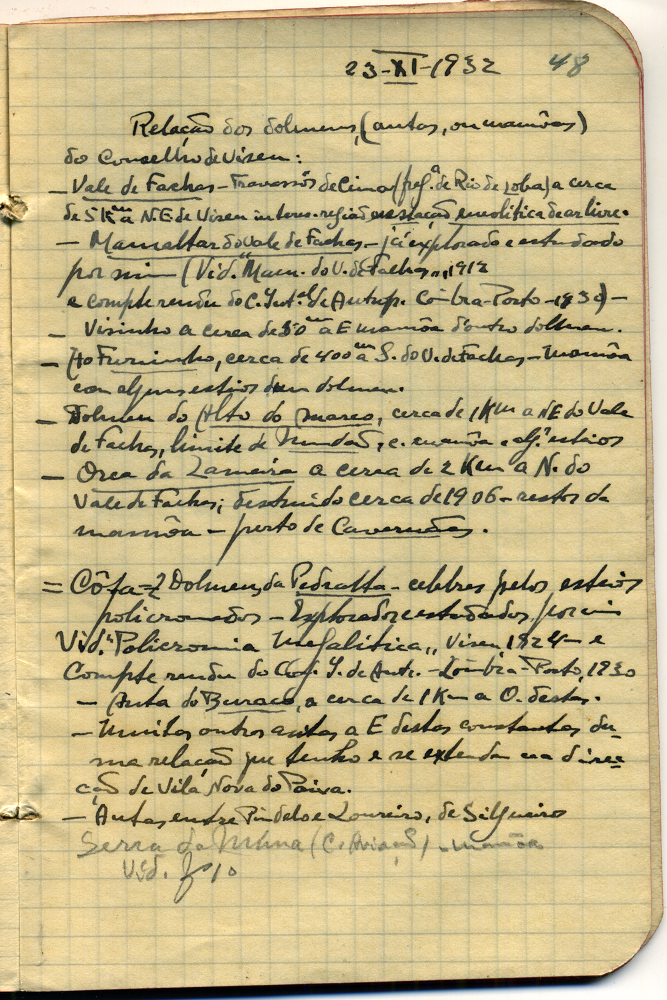 23-XI-1932 48
Relação dos dolmens, (antas, ou mamôas)
do Conselho de Viseu:
- Vale de Fachas - Travassós de Cima (freg.ª de Rio de Loba) a cerca
de 5 Km a N.E de Viseu estação eneolitica de ar livre.
- Mamaltar do Vale de Fachas - já explorado e estudado
por mim (Vid. "Mam. do V. de Fachas„, 1912
e compte rendu do C. Int.al de Antrop. Coimbra-Porto-1930) -
- Visinho a cerca de 50 m a E mamôa doutro dolmen.
- Ao Fusinho, cerca de 400 m a S. do V. de Fachas - Mamôa
com alguns esteios dum dolmen.
- Dolmen do Alto do Marco, cerca de 1 Km a NE do Vale
de Fachas, limite de Mundão, c. mamôa e alg. esteios
- Orca da Lameira a cerca de 2 Km a N. do
Vale de Fachas; destruido cerca de 1906 - restos da
mamôa - perto de Cavernães.
= Côta = 2 Dolmens da Pedralta - celebres pelos esteios
policromados - Explorados e estudados por mim
Vid. "Policromia Megalitica„ Viseu, 1924 - e
Compte rendu do Cog. I. de Antr. - Coimbra - Porto, 1930
- Anta do Buraco, a cerca de 1 Km a O. destas.
- Muitas outras antas a E destas constantes du-
ma relação que tenho e se extendem na direc-
ção de Vila Nova do Paiva.
- Antas, entre Pindelo e Loureiro, de Silgueiros
Serra da Muna (C. Aviação) - mamôa
Vid. f 10